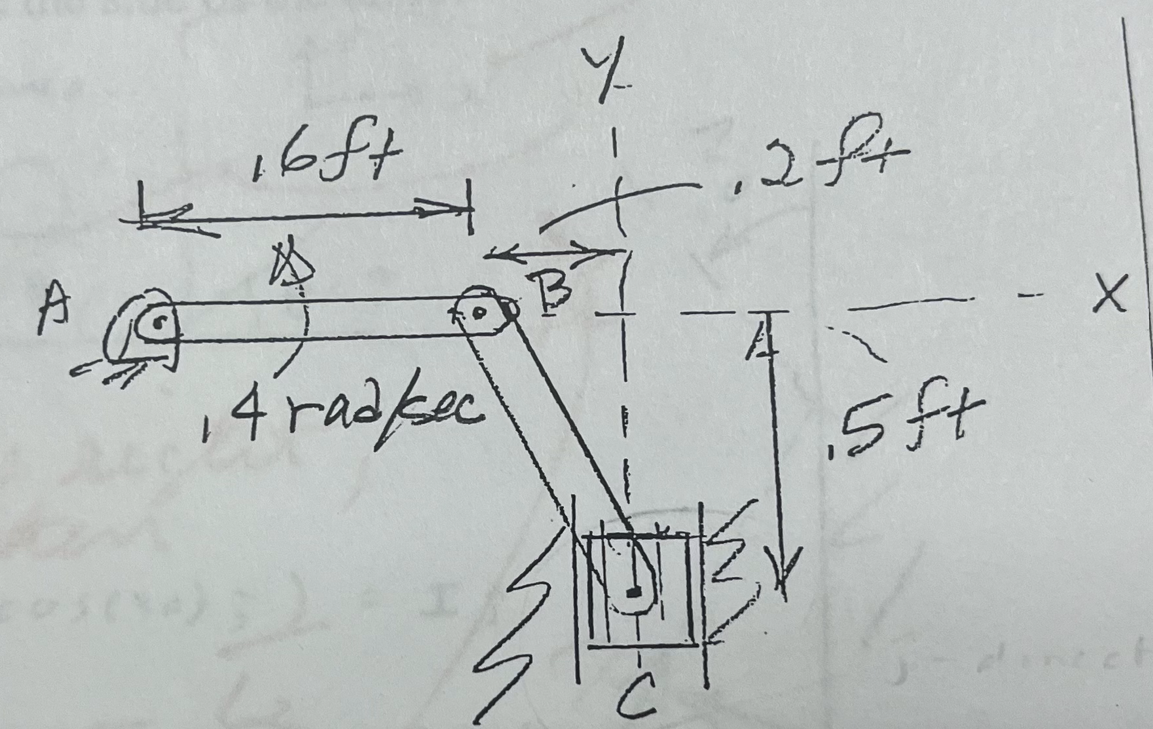 Y
.6ft
.2ft
A
B
X
.4 rad/sec
.5ft
C